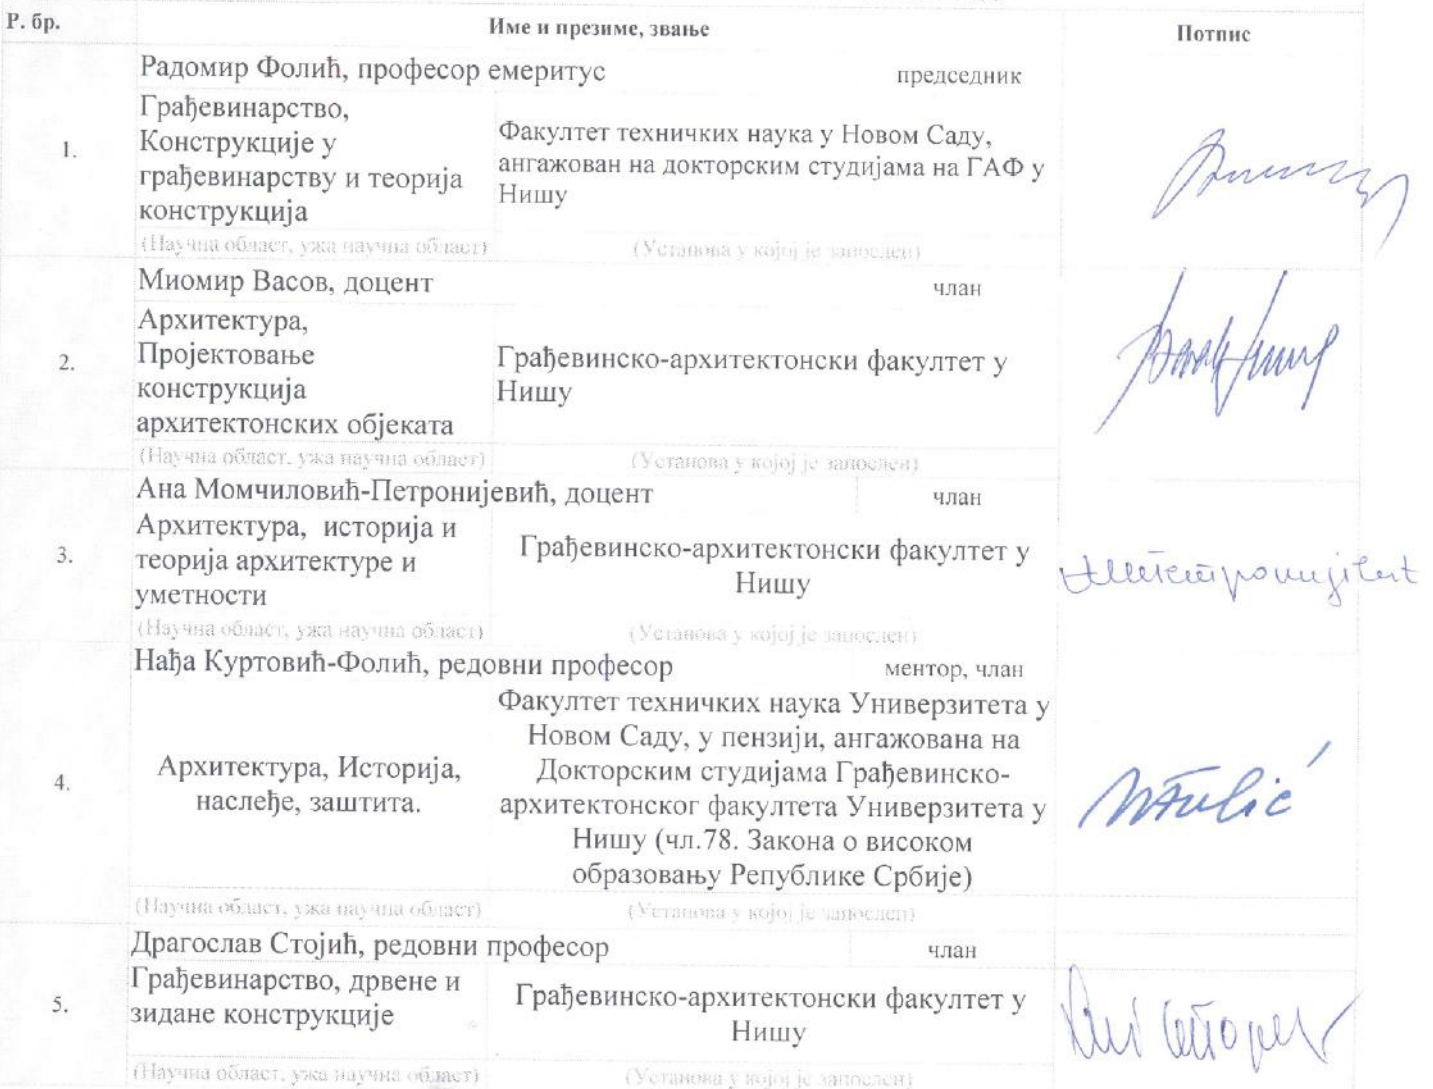 Р. бр.
Име и презиме, звање
Потпис
1.
Радомир Фолић, професор емеритус
председник
Грађевинарство,
Конструкције у
грађевинарству и теорија
конструкција
Факултет техничких наука у Новом Саду,
ангажован на докторским студијама на ГАФ у
Нишу
(Научна област, ужа научна област)
(Установа у којој је запослен)
2.
Миомир Васов, доцент
члан
Архитектура,
Пројектовање
конструкција
архитектонских објеката
Грађевинско-архитектонски факултет у
Нишу
(Научна област, ужа научна област)
(Установа у којој је запослен)
3.
Ана Момчиловић-Петронијевић, доцент
члан
Архитектура, историја и
теорија архитектуре и
уметности
Грађевинско-архитектонски факултет у
Нишу
(Научна област, ужа научна област)
(Установа у којој је запослен)
4.
Нађа Куртовић-Фолић, редовни професор
ментор, члан
Архитектура, Историја,
наслеђе, заштита.
Факултет техничких наука Универзитета у
Новом Саду, у пензији, ангажована на
Докторским студијама Грађевинско-
архитектонског факултета Универзитета у
Нишу (чл.78. Закона о високом
образовању Републике Србије)
(Научна област, ужа научна област)
(Установа у којој је запослен)
5.
Драгослав Стојић, редовни професор
члан
Грађевинарство, дрвене и
зидане конструкције
Грађевинско-архитектонски факултет у
Нишу
(Научна област, ужа научна област)
(Установа у којој је запослен)